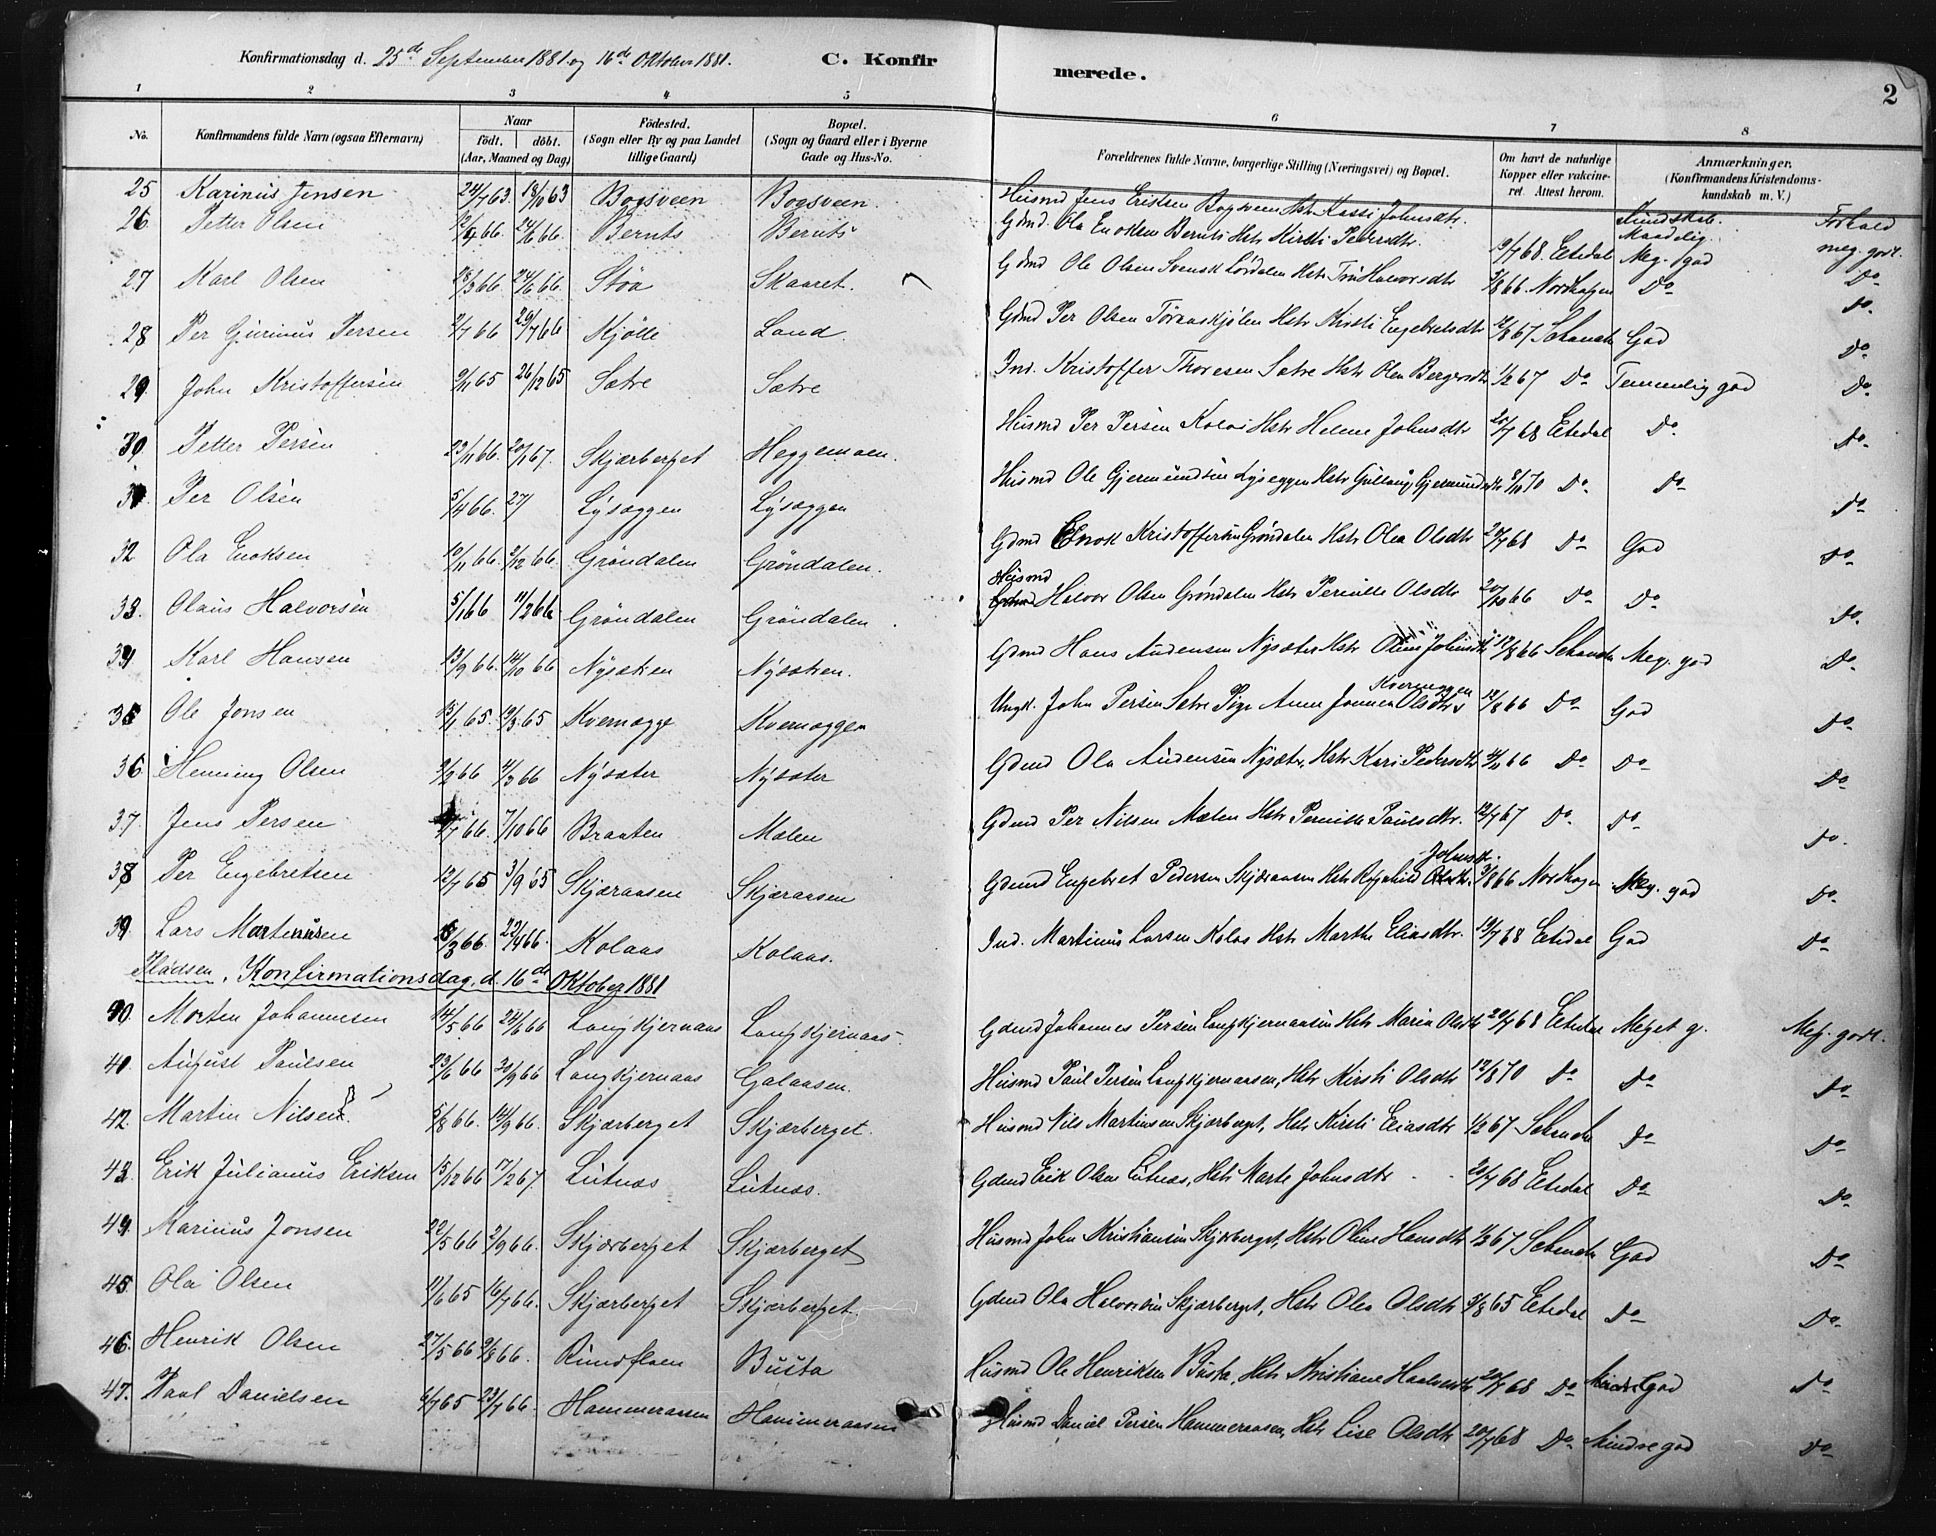 Konfirmationsdag d. 25de September 1881 og 16de Oktober 1881. C. Konfirmerede. 2
1 2 3 4 5 6 7 8
No. Konfirmandens fulde Navn (ogsaa Efternavn) Naar födt. döbt. (Aar, Maaned og Dag) Födested. (Sogn eller By og paa Landet tillige Gaard) Bopæl. (Sogn og Gaard eller i Byerne Gade og Hus-No. Forældrenes fulde Navne, borgerlige Stilling (Næringsvei) og Bopæl. Om havt de naturlige Kopper eller vakcineret. Attest herom. Anmærkninger. (Konfirmandens Kristendomskundskab m. V.)
Kundskab. Forhold
25 Karinus Jensen 24/7 63 18/10 63 Bogsveen Bogsveen. Husmd Jens Eriksen Bogsveen Hstr Kassi Johnsdtr. Maadelig. meg. godt.
26 Petter Olsen 12/4 66 24/6 66 Bernts Bernts Gdmd. Ola Enoksen Bernts Hstr Kirsti Pedersdtr. 19/7 68 Eltedal Meg. god Do
27 Karl Olsen 28/3 66 24/6 66. Støa Skaaret. Gdmd Ole Olsen Svensk Lørdalen Hstr Tru Halvorsdtr 3/8 66. Nordhagen Do Do.
28 Per Gurinus Persen 2/7 66 29/7 66 Kjölle Land. Gdmd Per Olsen Töraaskjølen Hstr Kirsti Engebretsdtr 12/8 67 Schanche God Do.
29 John Kristoffersen 9/11 65 26/12 65 Sætre Sætre Ind. Kristoffer Thoresen Sætre Hstr Olea Bergersdtr 1/2 67 Do Temmelig god Do.
30 Petter Persen 23/11 66. 20/1 67. Skjærberget Heggemoen. Husmd Per Persen Kolos Hstr Helene Johnsdtr 20/7 68 Eltedal Do. Do.
31 Per Olsen 5/4 66. 27/ Lysæggen Lysæggen Husmd Ole Gjermundsen Lyseggen Hstr Gullaug Gjermundsdtr 8/10 70 Do. Do Do.
32 Ola Enoksen 10/11 66 2/12 66. Gröndalen Gröndalen. Gdmd Enok Kristoffersen Grøndalen Hstr Olea Olsdtr 20/7 68 Do God Do.
33. Olaus Halvorsen 5/1 66 11/2 66 Gröndalen Gröndalen Husmd Halvor Olsen Grøndalen Hstr Pernille Olsdtr 20/10 66 Do. Do. Do.
34 Karl Hansen 13/9 66. 14/10 66 Nysætren Nysætren. Gdmd Hans Audensen Nysæter Hstr Oline Johnsdtr 12/8 66 Schanche Meg. god Do.
35 Ole Jonsen 15/1 65. 19/3 65 Kvernægge Kvernæggen Ungk. John Persen Sætre Pige Anne Jonnea Olsdtr Kverneggen 12/8 66 Do God Do.
36 Henning Olsen 9/2 66 4/3 66 Nysæter Nysæter Gdmd Ola Audensen Nysæter, Hstr Kari Pedersdtr 4/11 66 Do Do. Do.
37. Jens Persen /7 66. 7/10 66 Braaten Mælen Gdmd Per Nilsen Mælen Hstr Pernille Paulsdtr. 12/7 67 Do. Do. Do.
38 Per Engebretsen 12/7 65 3/9 65 Skjæraasen Skjæraasen Gdmd Engebret Pedersen Skjæraasen Hstr Ragnhild Johnsdtr. 3/8 66 Nordhagen Meg. god Do.
39 Lars Martinusen 8/3 66. 22/4 66. Kolaas Kolaas. Ind. Martinus Larsen Kolos Hstr Marthe Eliasdtr. 19/7 68 Eltedal God Do.
Plådsen. Konfirmationsdag. d. 16de Oktober 1881
40. Morten Johannesen 14/5 66 24/6 66 Langkjernaas Langkjernaas. Gdmd Johannes Persen Langkjernaasen Hstr Maria Olsdtr 20/7 68 Eltedal Meget g. Meg. godt.
40. August Paulsen 23/6 66 30/9 66 Langkjernaas Galaasen. Husmd Paul Persen Langkjernaasen, Hstr Kirsti Olsdtr 12/8 70 Do Do Do.
42. Martin Nilsen. 5/8 66. 14/9 66. Skjærberget Skjærberget. Husmd Nils Martinusen Skjærberget, Hstr Kirsti Eliasdtr 1/2 67 Schanche Do Do.
43. Erik Julianus Eriksen 15/12 66 17/2 67. Lutnæs Lutnæs. Gdmd Erik Olsen Lutnæs, Hstr Marte Johnsdtr 20/7 68 Eltedal Do Do
44. Marinus Jonsen 22/5 66 2/9 66. Skjærberget Skjærberget Husmd John Kristiansen Skjærberget, Hstr Oline Hansdtr 1/2 67 Schanche God Do.
45. Ola Olsen 11/6 65 16/7 66. Skjærberget Skjærberget. Gdmd Ola Halvorsen Skjærberget, Hstr Olea Olsdtr 3/8 65 Eltedal Do Do.
46. Henrik Olsen 27/5 66 9/8 66. Rundfloen Busta Husmd Ole Henriksen Busta, Hstr Kristiane 20/7 68 Do God Do
47. Paul Danielsen 6/7 65 23/7 66. Hammeraasen Hammeraasen Husmd Daniel Persen Hammeraasen, Hstr Lise Olsdtr 20/7 68 Do. Mindre god Do